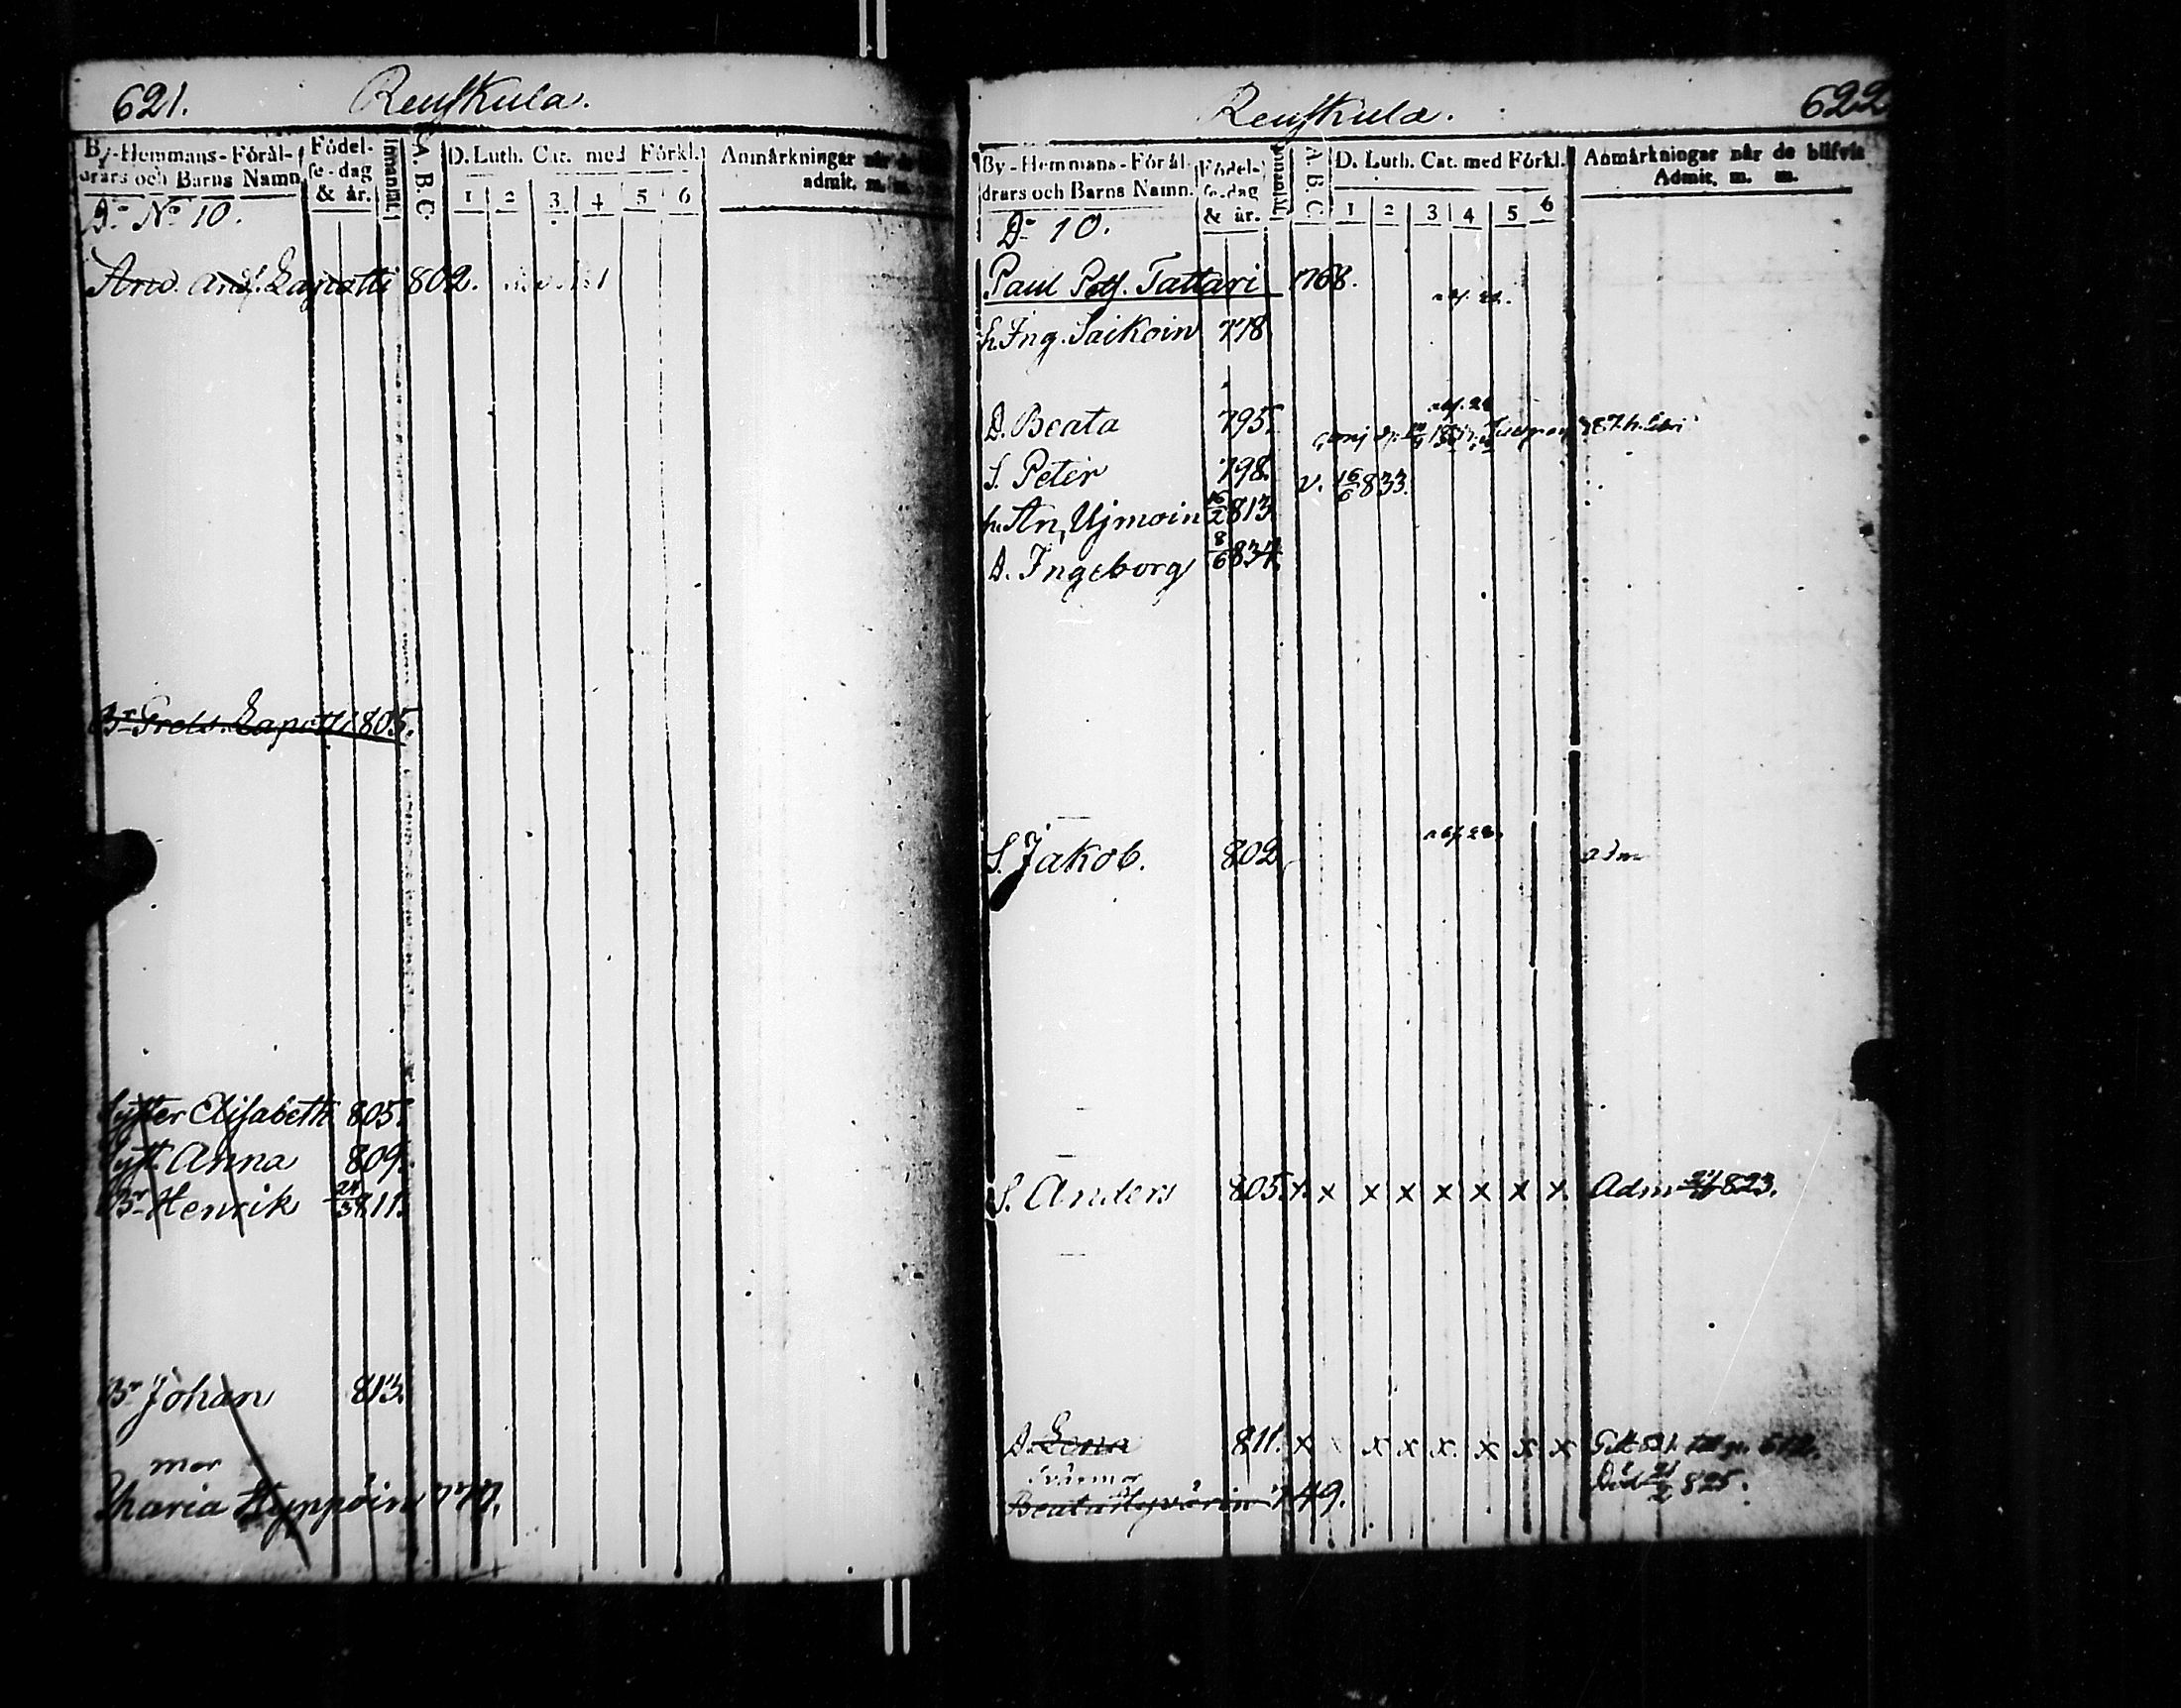 621. Reuskula.
By-Hemmans-Föräl-drars och Barns Namn. Födel-se-dag & år. Innanläs. A.B.C. D. Luth. Cat. med Förkl. 1 2 3 4 5 6 Anmärkningar når de
admit. m. m.
Do No 10.
And. Ands. Lapatti 802.
Br Fredr. Lapatti 805.
Syster Elisabeth 805.
Syst. Anna 809.
Br Henrik 24/3 811.
Br Johan 813.
mor
Maria Hyppöin 770.
Reuskula. 622
By-Hemmans-Föräl-drars och Barns Namn. Födel-se-dag & år. Innanläs. A B C D. Luth. Cat. med Förkl. 1 2 3 4 5 6 Anmärkningar når de blifvit
Admit. m. m.
Do 10.
Paul Pets. Tattari 1768.
h. Ing. Saikoin 778
D. Beata 795.
S. Peter 798. v. 16/6 833.
h. An. Ujmoin 16/2 813
D. Ingeborg 8/6 834.
S. Jakob. 802 adm
S. Anders 805. x x x x x x x x Adm 823.
D. Lena 811. x x x x x x x
Svärmor Död 21/2 825.
Beata Hyvärin 749.